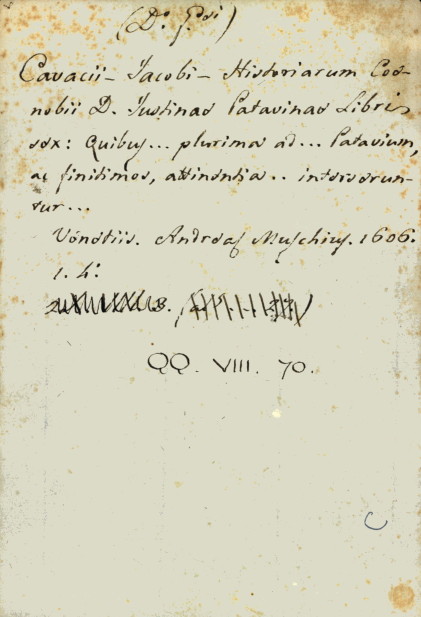 Cavacii - Jacobi - Historiarum Coe-
nobii D. Justinae Patavinae Libri
sex: Quibus... plurima ad... Patavium,
ac finitimos, attinentia.. interserun-
tur...
Venetiis. Andreas Muschius. 1606.
1. 4:
QQ. VIII. 70.